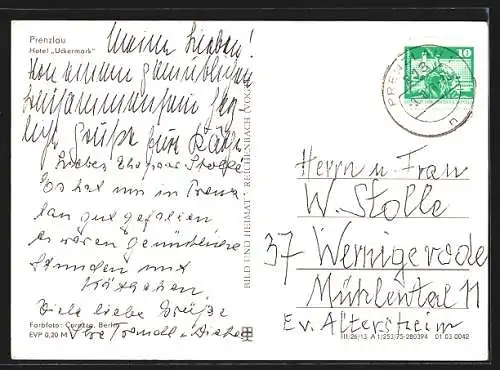 Prenzlau
Hotel „Uckermark"
Meine Lieben!
Von einem gemütlichen
Zusammensein
Grüße Eure Käthe
Liebes Ehepaar Stolle
Es hat uns in Prenz
lau gut gefallen
es waren gemütliche
Stunden mit
Käthchen
Viele liebe Grüße
Ihre
Farbfoto: Berlin
EVP 0,20 M
BILD UND HEIMAT · REICHENBACH (VOGTL)
10
PRENZLAU
Herrn u. Frau
W. Stolle
37 Wernigerode
Mühlental 11
Ev. Altersheim
III/26/13 A 1/253/75-280394 01 03 0042